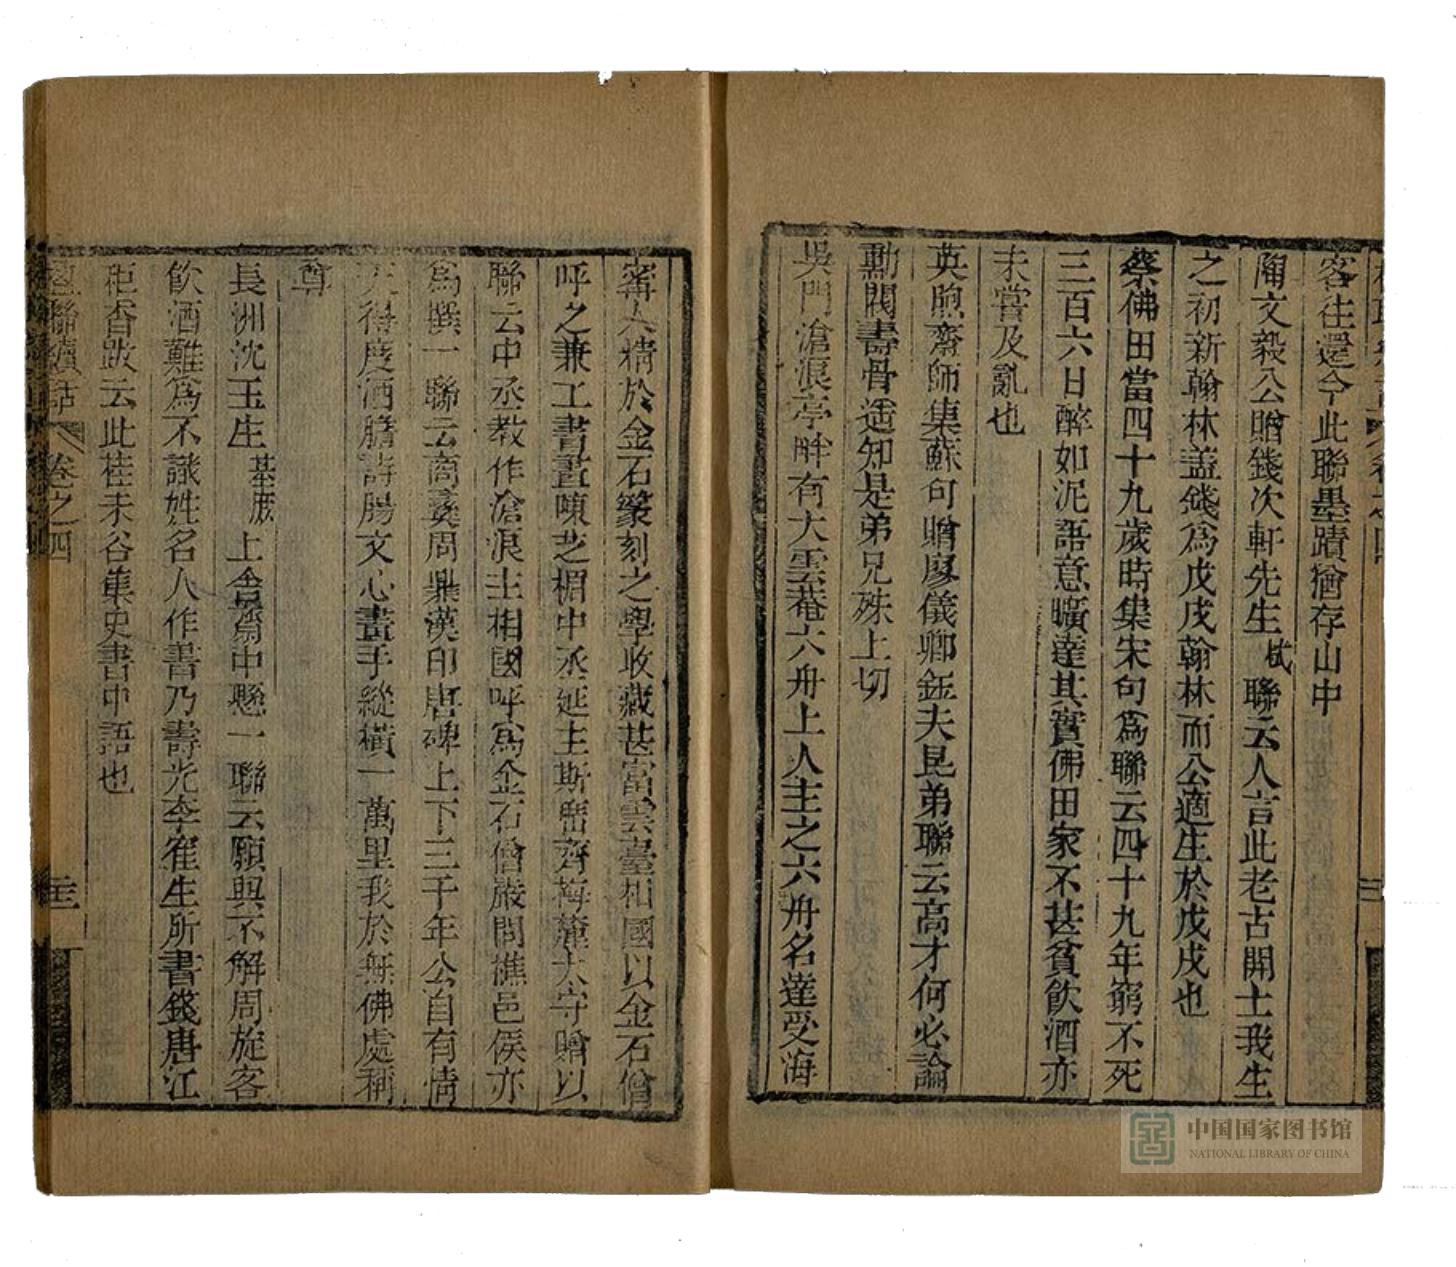 客往還今此聯墨蹟猶存山中
陶文毅公贈錢次軒先生栻聯云人言此老古開士我生
之初新翰林蓋錢爲戊戌翰林而公適生於戊戌也
蔡佛田當四十九歲時集宋句爲聯云四十九年窮不死
三百六日醉如泥語意曠達其實佛田家不甚貧飲酒亦
未嘗及亂也
英煦齋師集蘇句贈廖儀卿鈺夫昆弟聯云高才何必論
勳閥壽骨遙知是弟兄殊上切
吳門滄浪亭畔有大雲菴六舟上人主之六舟名達受海
甯人精於金石篆刻之學收藏甚富雲臺相國以金石僧
呼之兼工書畫陳芝楣中丞延主斯席齊梅麓太守贈以
聯云中丞教作滄浪主相國呼爲金石僧嚴問樵邑侯亦
爲撰一聯云商彝周鼎漢印唐碑上下三千年公自有情
天得度酒膽詩腸文心畫手縱橫一萬里我於無佛處稱
尊
長洲沈玉生基庶上舍齋中懸一聯云願與不解周旋客
飲酒難爲不識姓名人作書乃壽光李雀生所書錢唐江
秬香跋云此桂未谷集史書中語也
楹聯續話 卷之四
中国国家图书馆
NATIONAL LIBRARY OF CHINA